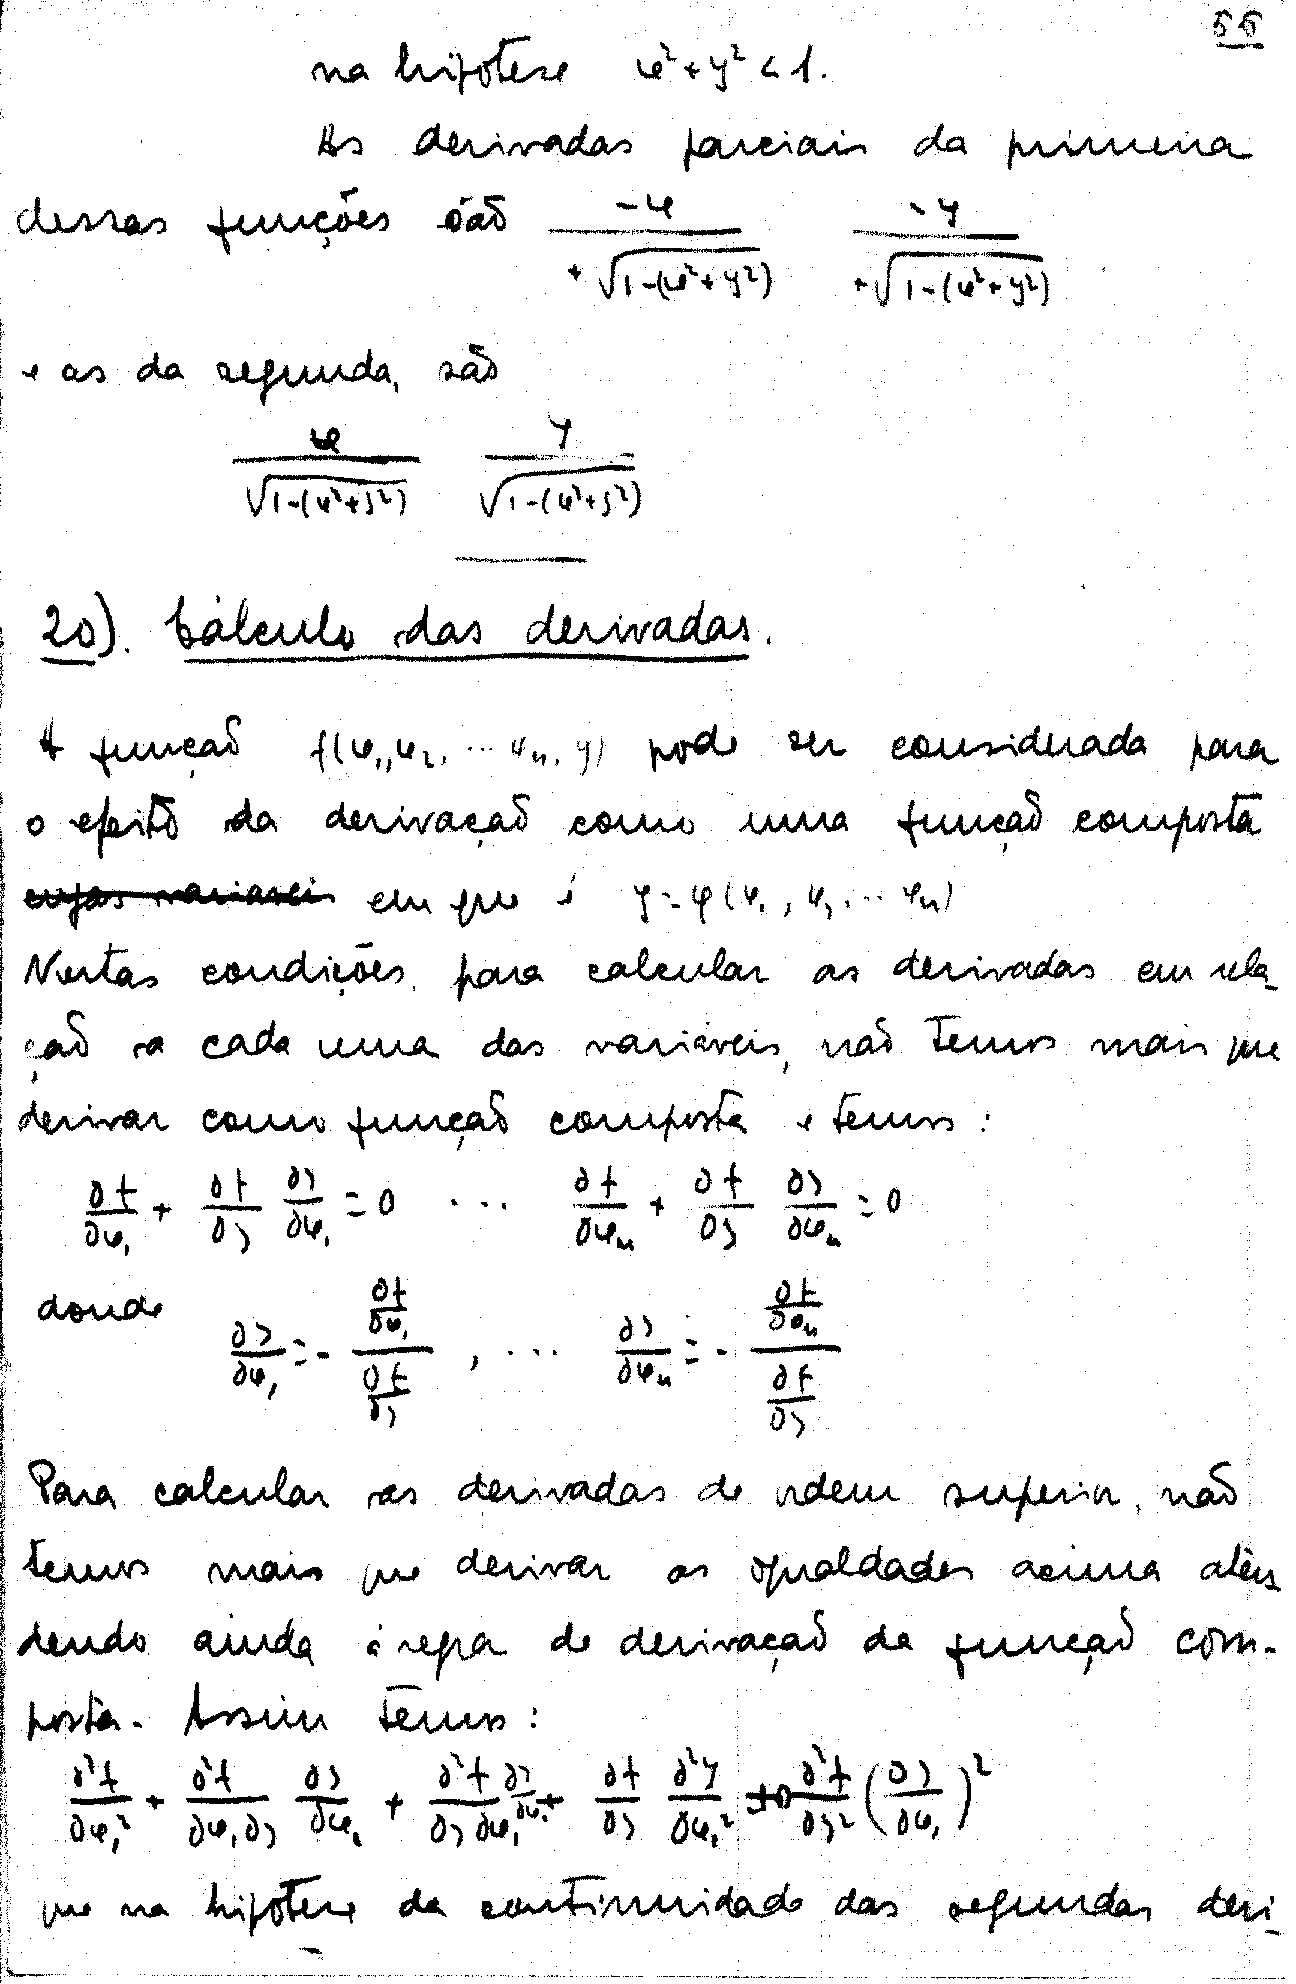 56
na hipótese x² + y² < 1.
As derivadas parciais da primeira
dessas funções são -x / +√(1-(x²+y²))   -y / +√(1-(x²+y²))
e as da segunda, são
x / √(1-(x²+y²))   y / √(1-(x²+y²))
20). Cálculo das derivadas.
A função f(x₁, x₂, ... xₙ, y) pode ser considerada para
o efeito da derivação como uma função composta
em que é y = φ(x₁, x₂, ... xₙ)
Nestas condições, para calcular as derivadas em rela-
ção a cada uma das variáveis, não temos mais que
derivar como função composta e temos:
∂f/∂x₁ + ∂f/∂y ∂y/∂x₁ = 0 ... ∂f/∂xₙ + ∂f/∂y ∂y/∂xₙ = 0
donde ∂y/∂x₁ = - (∂f/∂x₁)/(∂f/∂y) , ... ∂y/∂xₙ = - (∂f/∂xₙ)/(∂f/∂y)
Para calcular as derivadas de ordem superior, não
temos mais que derivar as igualdades acima aten-
dendo ainda á regra de derivação da função com-
posta. Assim temos:
∂²f/∂x₁² + ∂²f/∂x₁∂y ∂y/∂x₁ + ∂²f/∂y∂x₁ ∂y/∂x₁ + ∂f/∂y ∂²y/∂x₁² + ∂²f/∂y² (∂y/∂x₁)²
que na hipótese da continuidade das segundas deri-